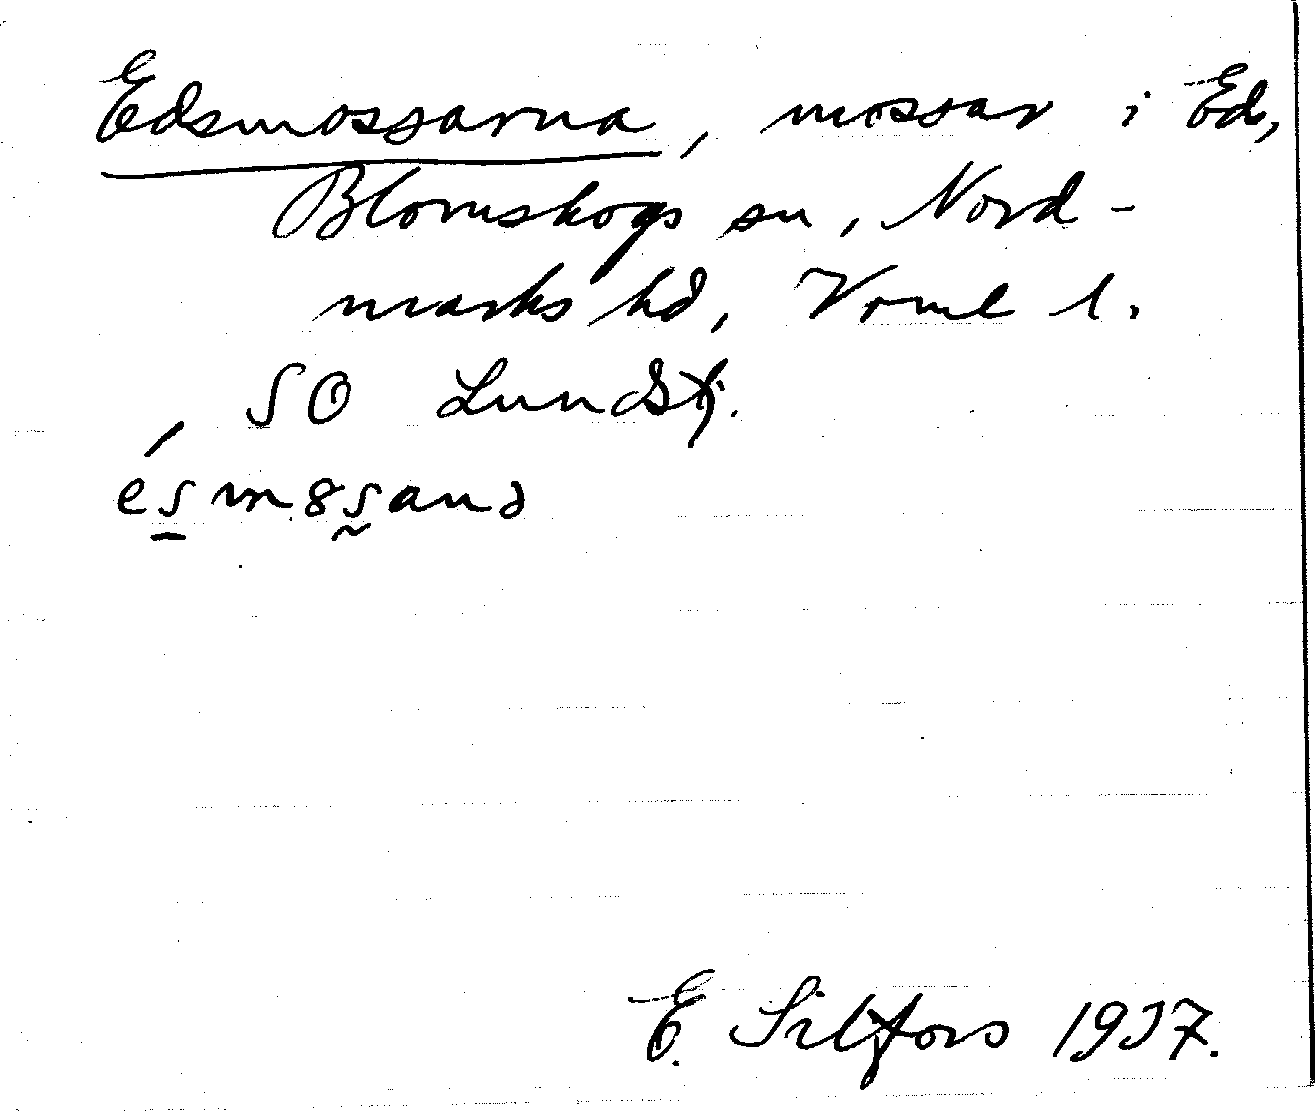 Edsmossarna, mossar i Ed,
Blomskogs sn, Nord-
marks hd, Vrml l.
SO Lundstj.
ésmɞsanə
E. Silfors 1937.